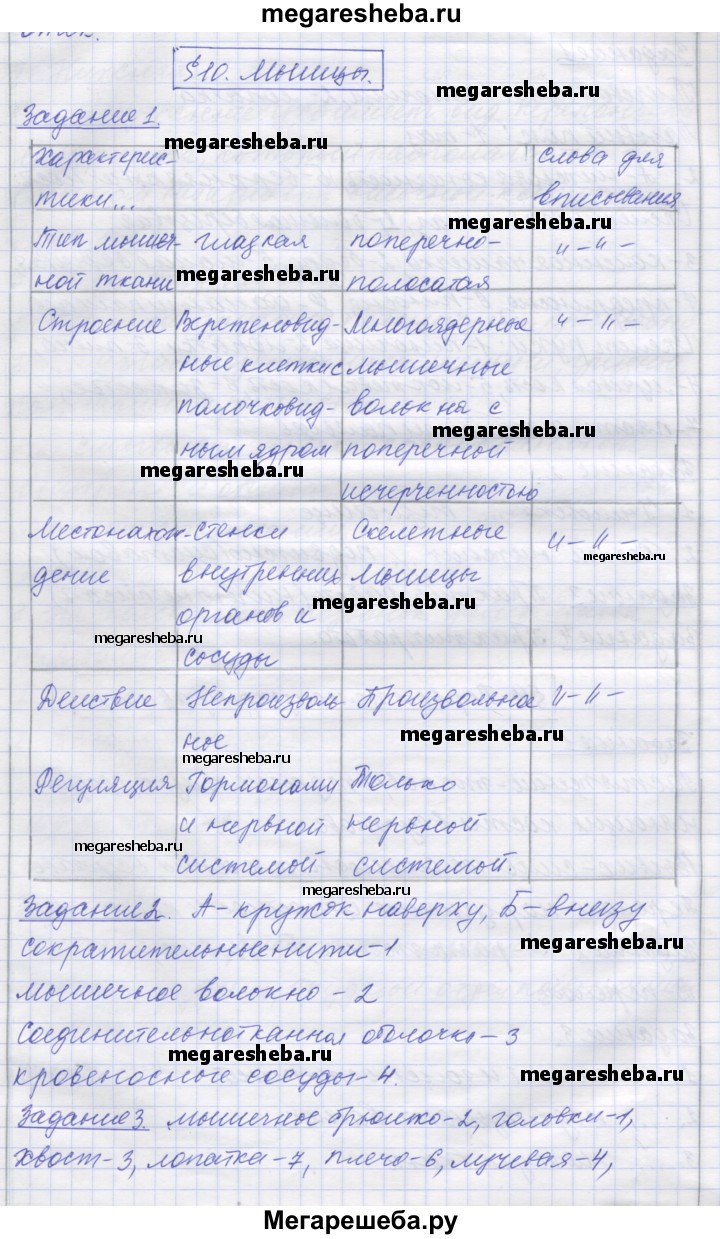 megaresheba.ru
§10. Мышцы.
megaresheba.ru
Задание 1.
megaresheba.ru
Характерис- слова для
тики... вписывания
megaresheba.ru
Тип мышеч- гладкая поперечно- -"-"-
ной ткани полосатая
megaresheba.ru
Строение Веретеновид- Многоядерные "-"-
ные клетки с мышечные
палочковид- волокна с
megaresheba.ru
ным ядром поперечной
megaresheba.ru
исчерченностью
Местонахож- стенки Скелетные "-"-
megaresheba.ru
дение внутренних мышцы
megaresheba.ru
органов и
megaresheba.ru
сосуды
Действие Непроизволь- Произвольное "-"-
megaresheba.ru
ное
megaresheba.ru
Регуляция Гормонами Только
и нервной нервной
megaresheba.ru
системой системой.
megaresheba.ru
Задание 2. А-кружок наверху, Б-внизу
сократительные нити-1
megaresheba.ru
мышечное волокно - 2
Соединительнотканная оболочка-3
megaresheba.ru
кровеносные сосуды-4.
megaresheba.ru
Задание 3. мышечное брюшко-2, головки-1,
хвост-3, лопатка-7, плечо-6, лучевая-4,
megaresheba.ru
Мегарешеба.ру